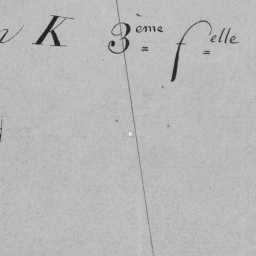 K 3ème felle